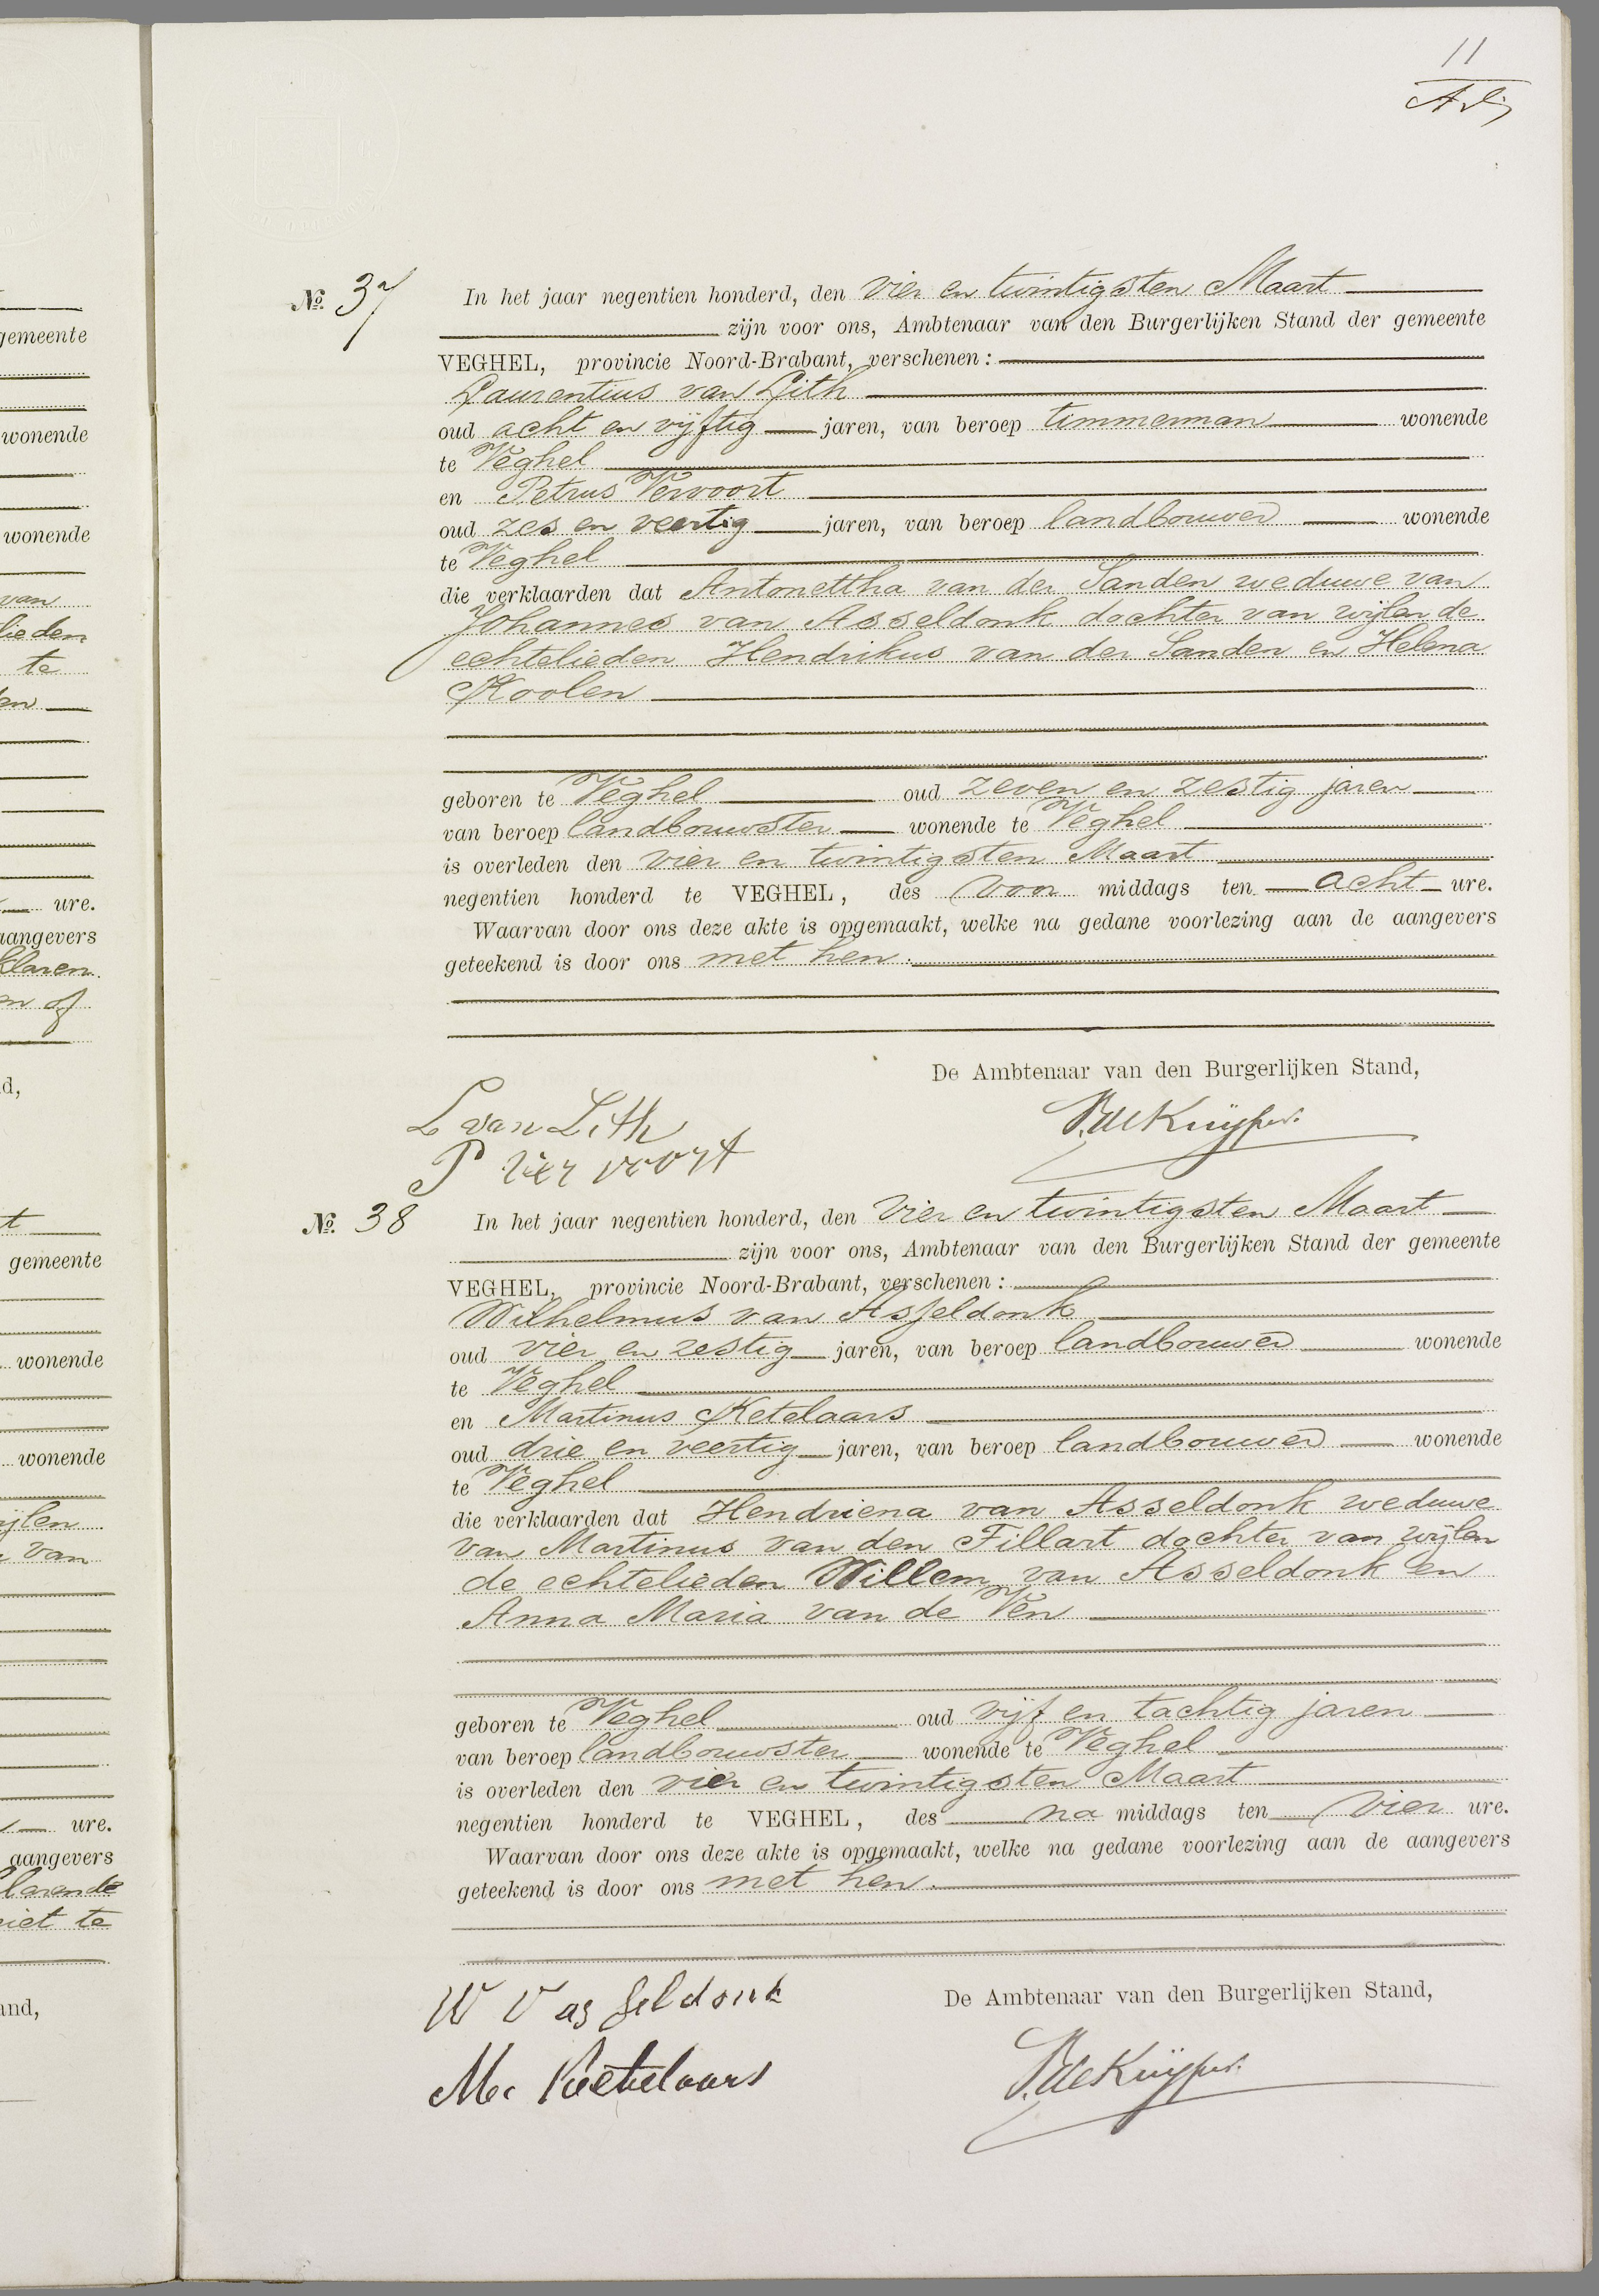 11
No. 37 In het jaar negentien honderd, den vier en twintigsten Maart
zijn voor ons, Ambtenaar van den Burgerlijken Stand der gemeente
VEGHEL, provincie Noord-Brabant, verschenen:
Laurentius van Lith
oud acht en vijftig jaren, van beroep timmerman wonende
te Veghel
en Petrus Vervoort
oud zes en veertig jaren, van beroep landbouwer wonende
te Veghel
die verklaarden dat Antonettha van der Sanden weduwe van
Johannes van Asseldonk dochter van wijlen de
echtelieden Hendrikus van der Sanden en Helena
Koolen
geboren te Veghel oud zeven en zestig jaren
van beroep landbouwster wonende te Veghel
is overleden den vier en twintigsten Maart
negentien honderd te VEGHEL, des voor middags ten acht ure.
Waarvan door ons deze akte is opgemaakt, welke na gedane voorlezing aan de aangevers
geteekend is door ons met hen.
De Ambtenaar van den Burgerlijken Stand,
L van Lith
P Ver voort
No. 38 In het jaar negentien honderd, den vier en twintigsten Maart
zijn voor ons, Ambtenaar van den Burgerlijken Stand der gemeente
VEGHEL, provincie Noord-Brabant, verschenen:
Wilhelmus van Asseldonk
oud vier en zestig jaren, van beroep landbouwer wonende
te Veghel
en Martinus Ketelaars
oud drie en veertig jaren, van beroep landbouwer wonende
te Veghel
die verklaarden dat Hendriena van Asseldonk weduwe
van Martinus van den Tillart dochter van wijlen
de echtelieden Willem van Asseldonk en
Anna Maria van de Ven
geboren te Veghel oud vijf en tachtig jaren
van beroep landbouwster wonende te Veghel
is overleden den vier en twintigsten Maart
negentien honderd te VEGHEL, des na middags ten vier ure.
Waarvan door ons deze akte is opgemaakt, welke na gedane voorlezing aan de aangevers
geteekend is door ons met hen.
De Ambtenaar van den Burgerlijken Stand,
W V asseldonk